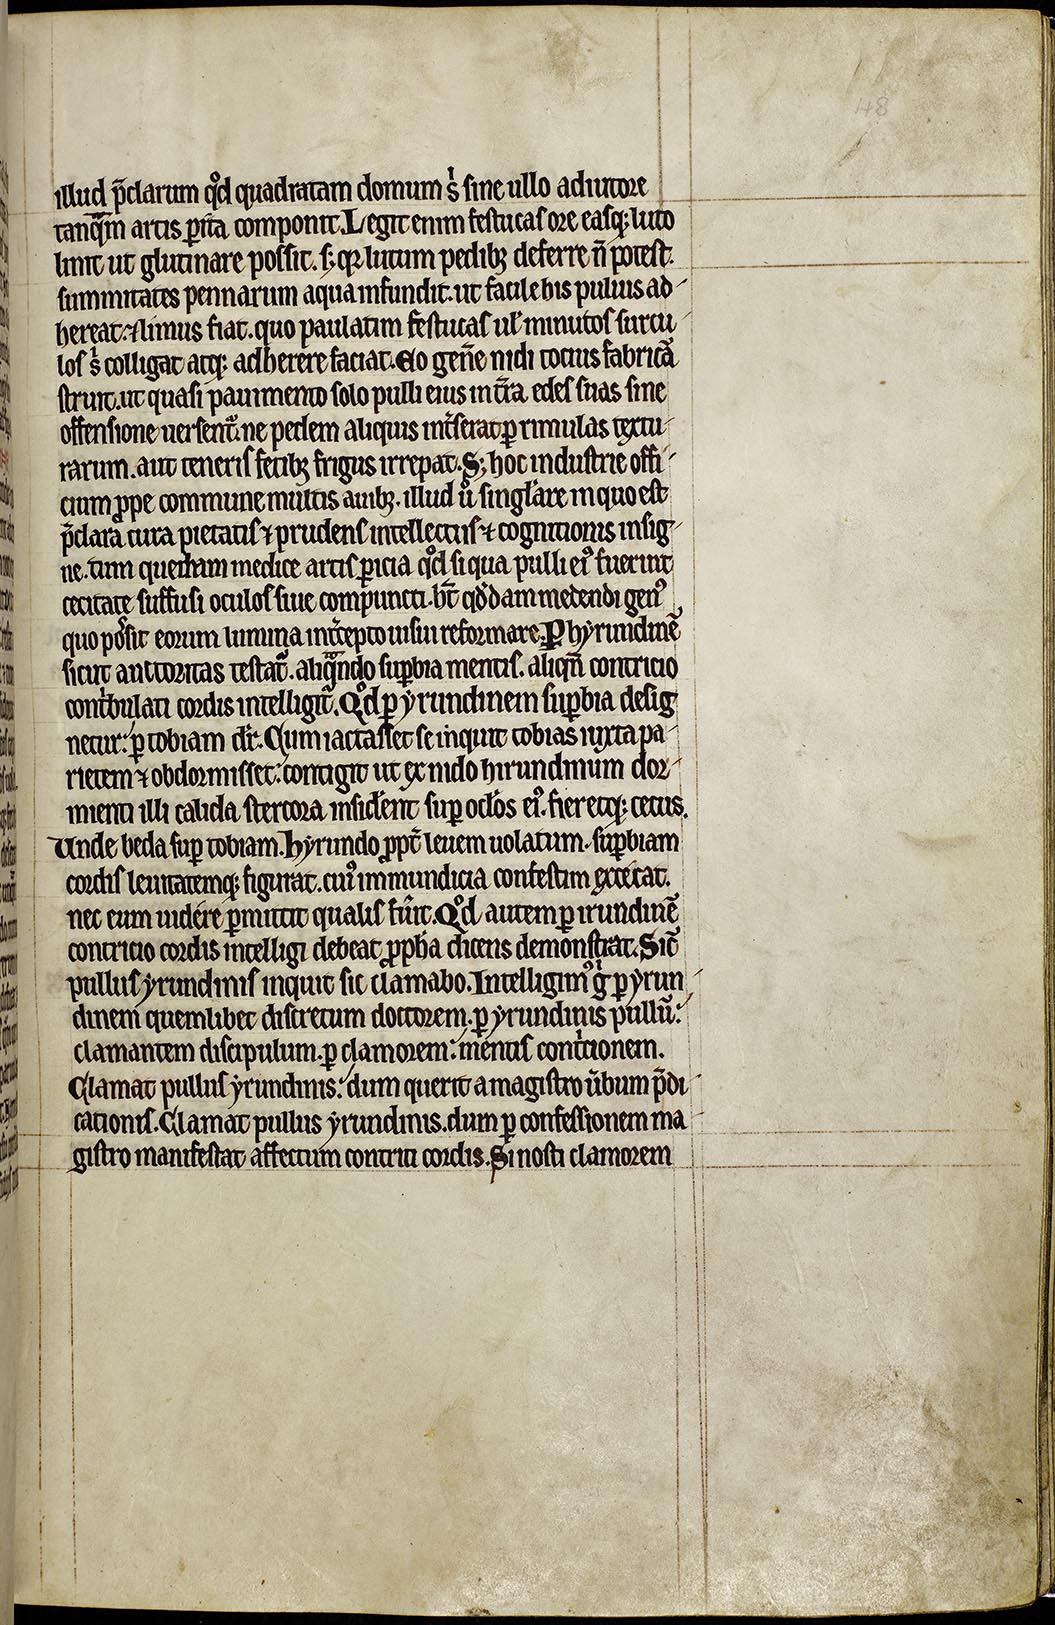 48
illud p̄clarum qd̊ quadratam domum s̓ sine ullo adiutore
tanq̄m artis ꝑita componit. Legit enim festucas ore easq; luto
linit ut glutinare possit. s; qꝛ lutum pedibꝫ deferre n̄ potest.
summitates pennarum aqua infundit. ut facile his puluis ad
hereat. ⁊ limus fiat. quo paulatim festucas ul̓ minutos surcu
los s̓ colligat atq; adherere faciat. Eo gen̄e nidi tocius fabricā
struit. ut quasi pauimento solo pulli eius int̄ra edes suas sine
offensione uersent᷑. ne pedem aliquis int̓serat ꝑ rimulas textu
rarum. aut teneris fetibꝫ frigus irrepat. S; hoc industrie offi
cium ꝓpe commune multis auibꝫ. illud u̓ singl̓are in quo est
p̄clara cura pietatis ⁊ prudens intellectus ⁊ cognitionis insig
ne. tum quedam medice artis ꝑicia qd̊ si qua pulli eiꝰ fuerint
cecitate suffusi oculos siue compuncti. h̄t qd̊dam medendi genꝰ
quo possit eorum lumina int̓cepto uisui reformare. P hyrundinē
sicut auctoritas testat᷑. aliq̄ndo suꝑbia mentis. aliqn̄ contricio
cont̓bulati cordis intelligit᷑. Qd̊ ꝑ yrundinem suꝑbia desig
netur: ꝑ tobiam dr̄. Cum iactasset se inquit tobias iuxta pa
rietem ⁊ obdormisset: contigit ut ex nido hirundinum dor
mienti illi calida stercora insid̓ent suꝑ ocl̓os eiꝰ. fieretq; cecus.
Unde beda suꝑ tobiam. Hyrundo ꝓpt̄ leuem uolatum. suꝑbiam
cordis leuitatemq; figurat. cuiꝰ immundicia confestim excecat.
nec eum uidere ꝑmittit qualis fu̓it. Qd̊ autem ꝑ irundinē
contricio cordis intelligi debeat ꝓph̄a dicens demonstrat. Sic̄
pullus yrundinis inquit sic clamabo. Intelligimꝰ g̓ ꝑ yrun
dinem quemlibet discretum doctorem. ꝑ yrundinis pullū:
clamantem discipulum. ꝑ clamorem: mentis cont̓cionem.
Clamat pullus yrundinis: dum querit a magistro u̓bum p̄di
cationis. Clamat pullus yrundinis. dum ꝑ confessionem ma
gistro manifestat affectum contriti cordis. Si nosti clamorem